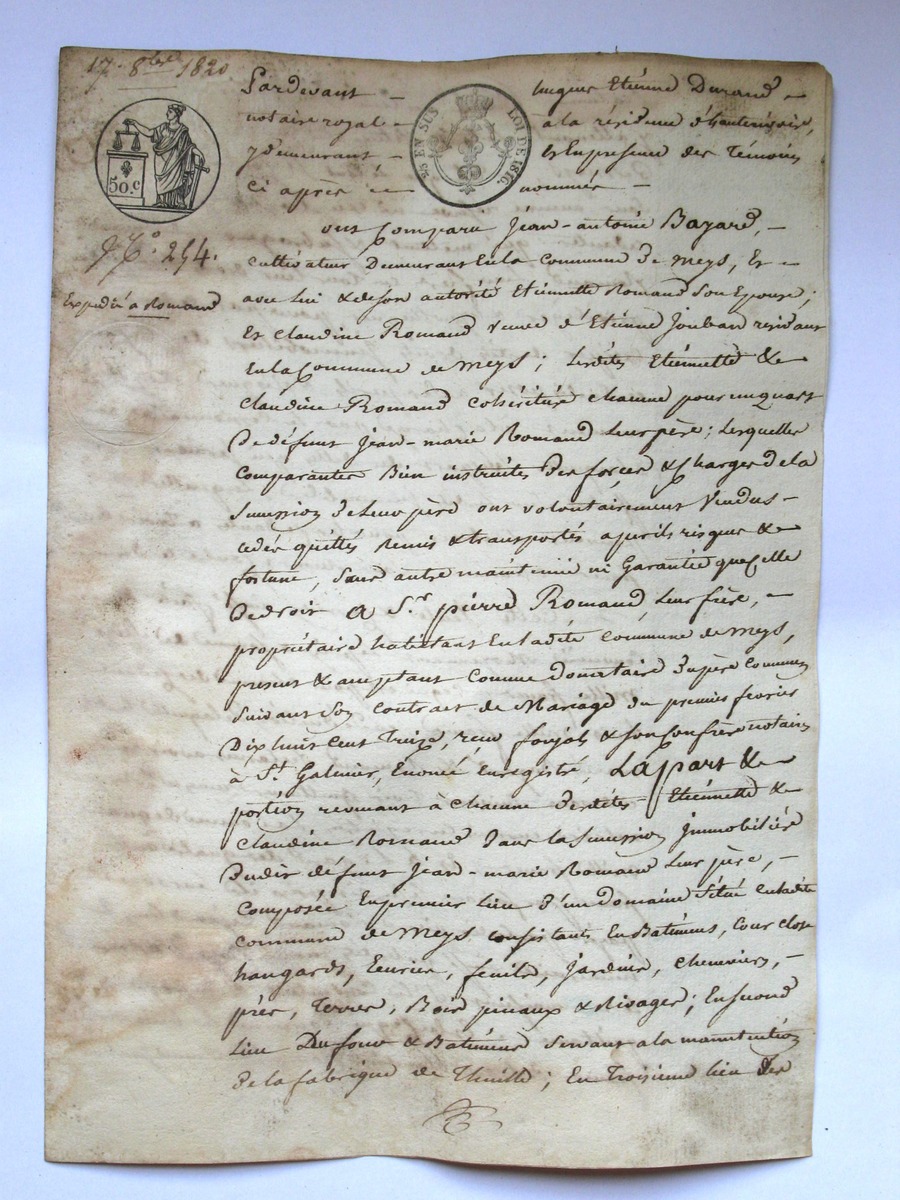 17. 8bre 1820
50.c
25 EN SUS LOI DE 1816.
No. 254.
Expédié a Romand
Pardevant - Etiénne Durand -
notaire royal - a la résidence
y demeurant - Et En presence des Témoins
Ci après - nommés -
ont Comparu Jéan-antoine Bazard, -
Cultivateur Demeurant En la Commune De meys, Et -
avec lui & de son autorité Etiénnette Romand Son Epouse;
Et Claudine Romand veuve d'Etiénne Joubar residant
En la Commune de meys; Lesdites Etiénnette &
Claudine Romand cohéritière chacune pour un quart
De défunt Jéan-marie Romand Leur père; Lesquelles
Comparantes Bien instruites Des forces & Charges de la
Succession De Leur père ont volontairement Vendus -
cédés quittés Remis & transportés a perils risques &
fortune, Sans autre maintenüe ni Garantie que Celle
De droit a Sr. pierre Romand, Leur frère, -
propriétaire habittant En ladite Commune de meys,
present & acceptant Comme donnataire Du père Commun
Suivant Son Contract de Mariage du premier fevrier
Dix huit Cent Treize, reçu & Son Confrère notaires
à St. Galmier, Enoncé Enregistré, La part &
portion revenant à Chacune Desdites Etiénnette &
Claudine Romand Dans la Succession Immobilière
Dudit défunt Jéan-marie Romand Leur père, -
Composée En premier lieu D'un Domaine Situé En ladite
Commune de Meys Consistants En Batiments, Cour close
hangards, Ecurie, fenils, Jardins, Chenevier, -
prés, Terres, Bois pinaux & Rivages; En Second
lieu Du four & Batiments Servant a la manutention
de la fabrique de Thuille; En Troisieme lieu Des